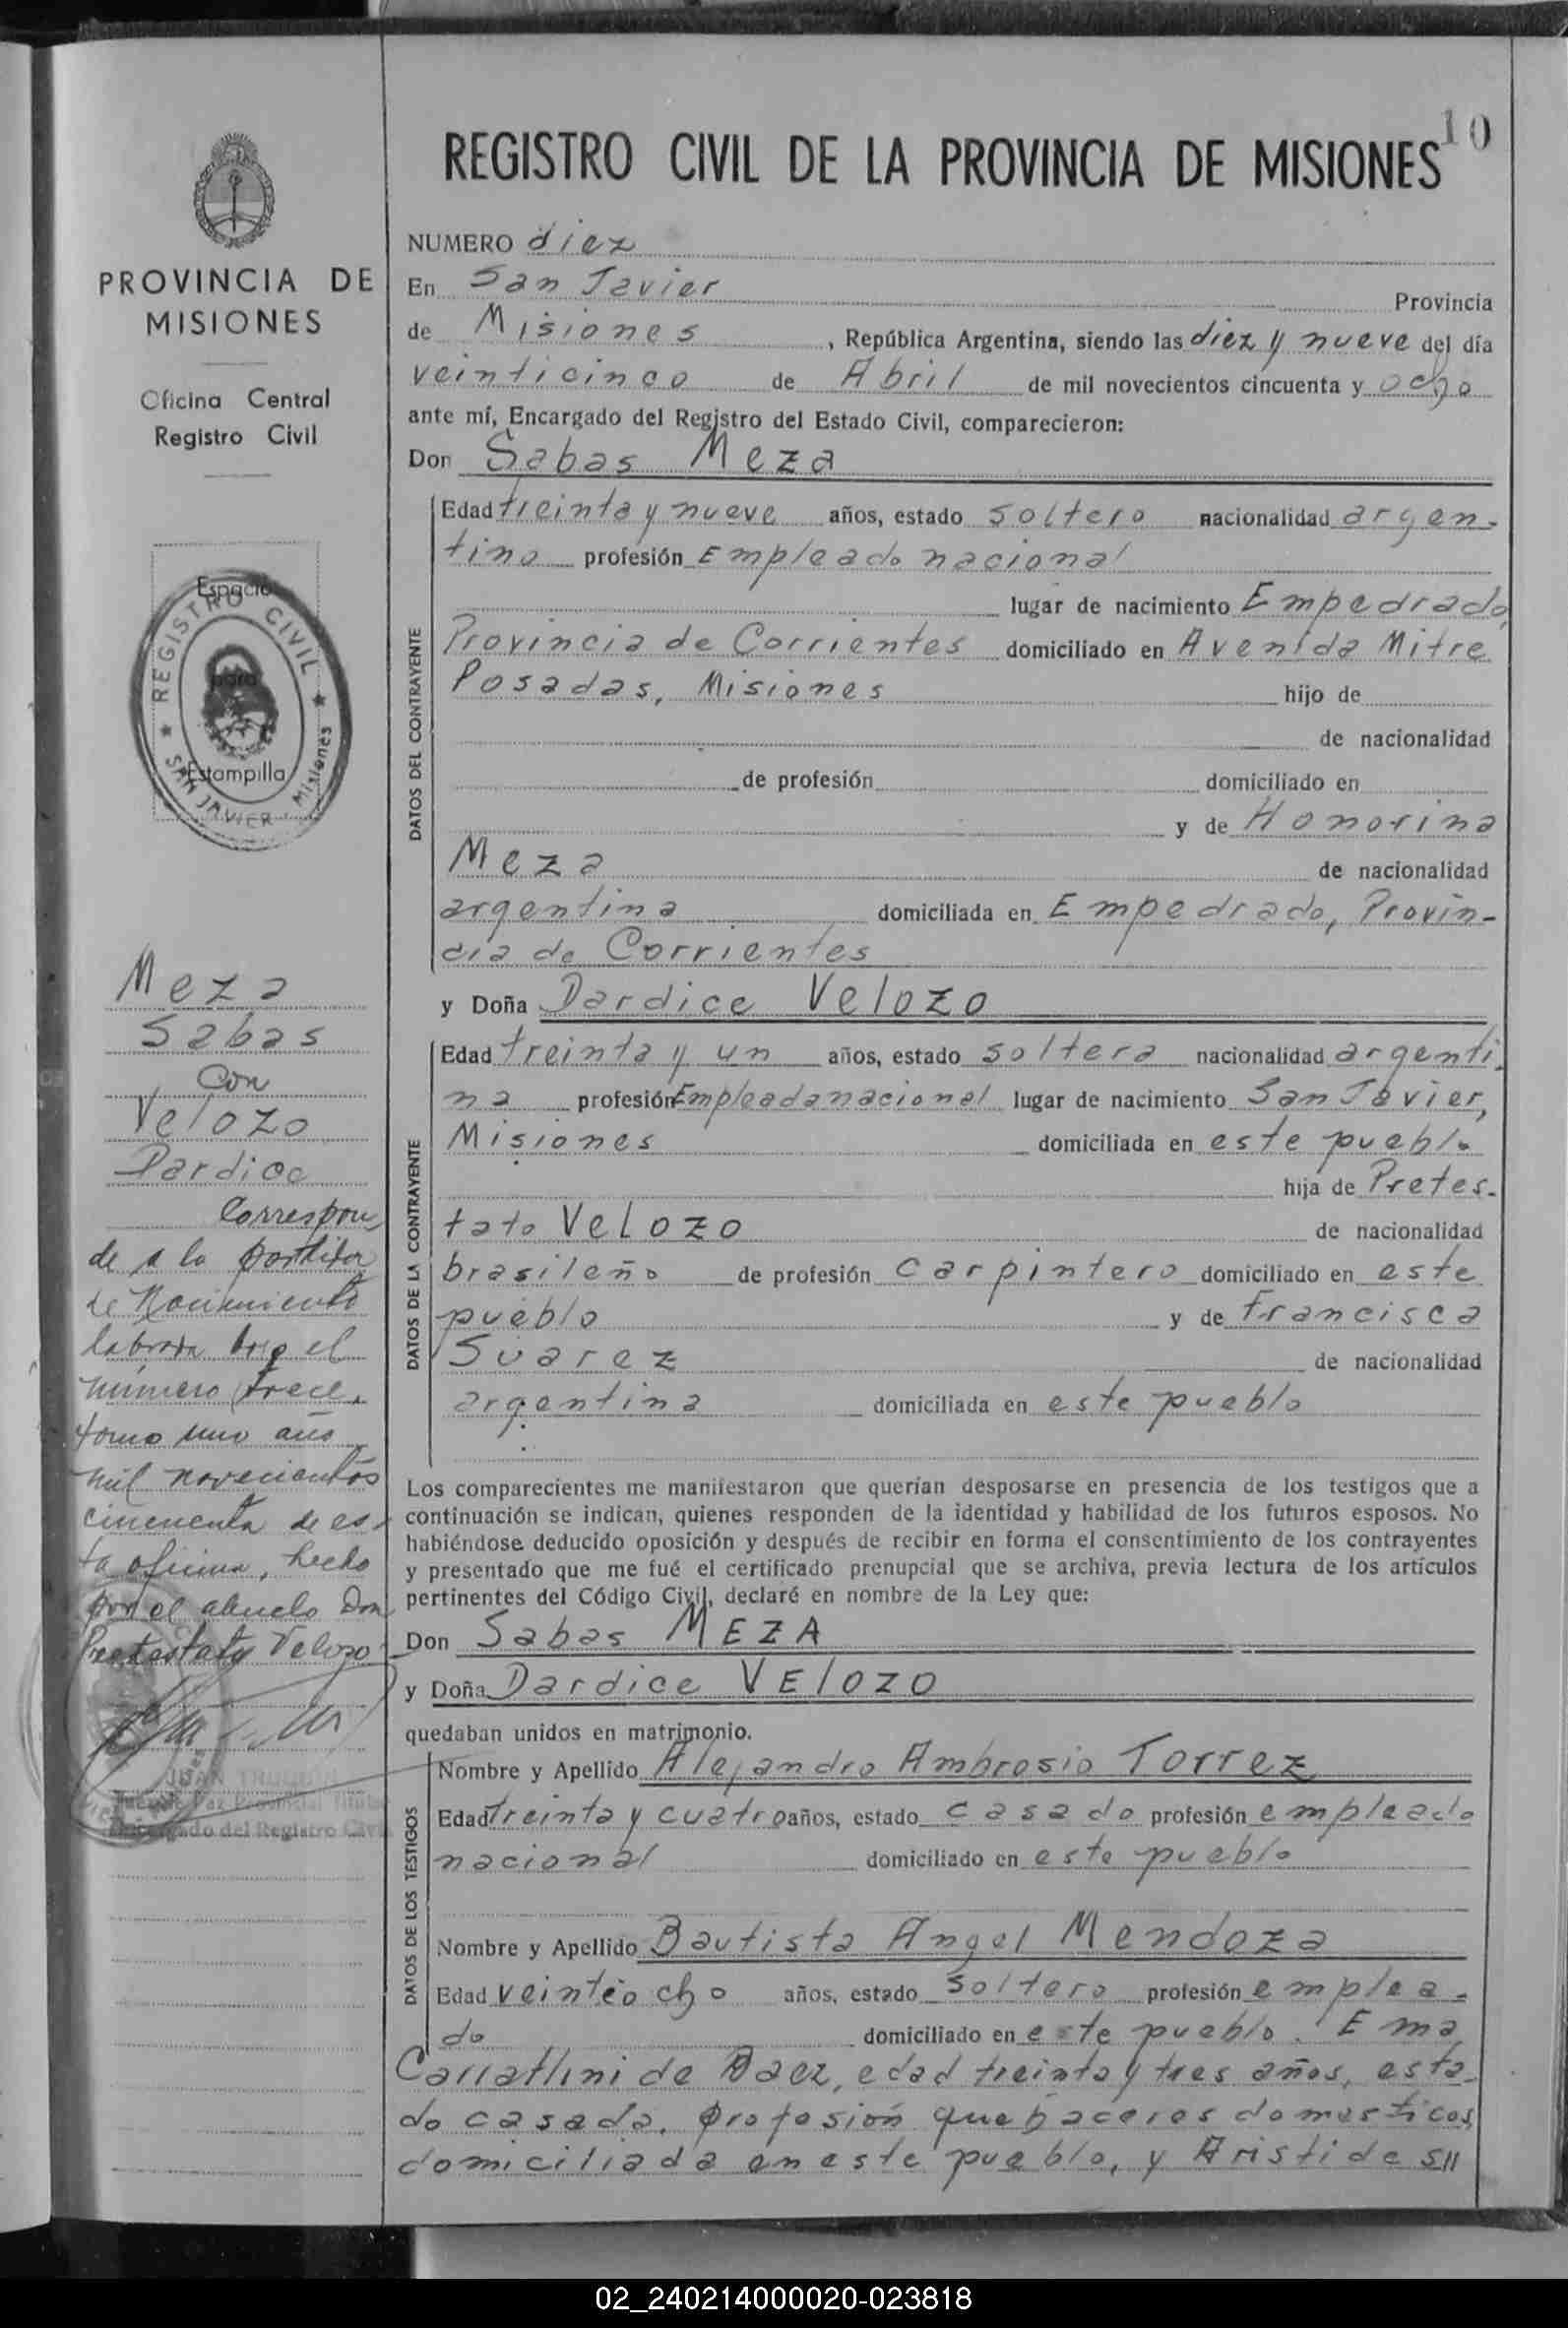 10
REGISTRO CIVIL DE LA PROVINCIA DE MISIONES
NUMERO diez
En San Javier Provincia
de Misiones, República Argentina, siendo las diez y nueve del día
veinticinco de Abril de mil novecientos cincuenta y ocho
ante mí, Encargado del Registro del Estado Civil, comparecieron:
Don Sabas Meza
DATOS DEL CONTRAYENTE
Edad treinta y nueve años, estado soltero nacionalidad argen-
tino profesión Empleado nacional
lugar de nacimiento Empedrado,
Provincia de Corrientes domiciliado en Avenida Mitre
Posadas, Misiones hijo de
de nacionalidad
de profesión domiciliado en
y de Honorina
Meza de nacionalidad
argentina domiciliada en Empedrado, Provin-
cia de Corrientes
y Doña Dardice Velozo
DATOS DE LA CONTRAYENTE
Edad treinta y un años, estado soltera nacionalidad argenti-
na profesión Empleada nacional lugar de nacimiento San Javier,
Misiones domiciliada en este pueblo
hija de Pretes-
tato Velozo de nacionalidad
brasileño de profesión carpintero domiciliado en este
pueblo y de Francisca
Suarez de nacionalidad
argentina domiciliada en este pueblo
Los comparecientes me manifestaron que querían desposarse en presencia de los testigos que a
continuación se indican, quienes responden de la identidad y habilidad de los futuros esposos. No
habiéndose deducido oposición y después de recibir en forma el consentimiento de los contrayentes
y presentado que me fué el certificado prenupcial que se archiva, previa lectura de los artículos
pertinentes del Código Civil, declaré en nombre de la Ley que:
Don Sabas MEZA
y Doña Dardice VElOZO
quedaban unidos en matrimonio.
DATOS DE LOS TESTIGOS
Nombre y Apellido Alejandro Ambrosio Torrez
Edad treinta y cuatro años, estado casado profesión empleado
nacional domiciliado en este pueblo
Nombre y Apellido Bautista Angel Mendoza
Edad veintiocho años, estado soltero profesión emplea-
do domiciliado en este pueblo. Ema
de Baez, edad treinta y tres años, esta-
do casada, profesión quehaceres domesticos,
domiciliada en este pueblo, y Aristides
PROVINCIA DE
MISIONES
Oficina Central
Registro Civil
Espacio
para
Estampilla
REGISTRO CIVIL
SAN JAVIER Misiones
Meza
Sabas
con
Velozo
Dardice
Correspon-
de a la partida
de Nacimiento
labrada bajo el
número trece,
tomo uno año
mil novecientos
cincuenta de es-
ta oficina, hecho
por el abuelo Don
Pretestato Velozo
JUAN
Encargado del Registro Civil
02_240214000020-023818